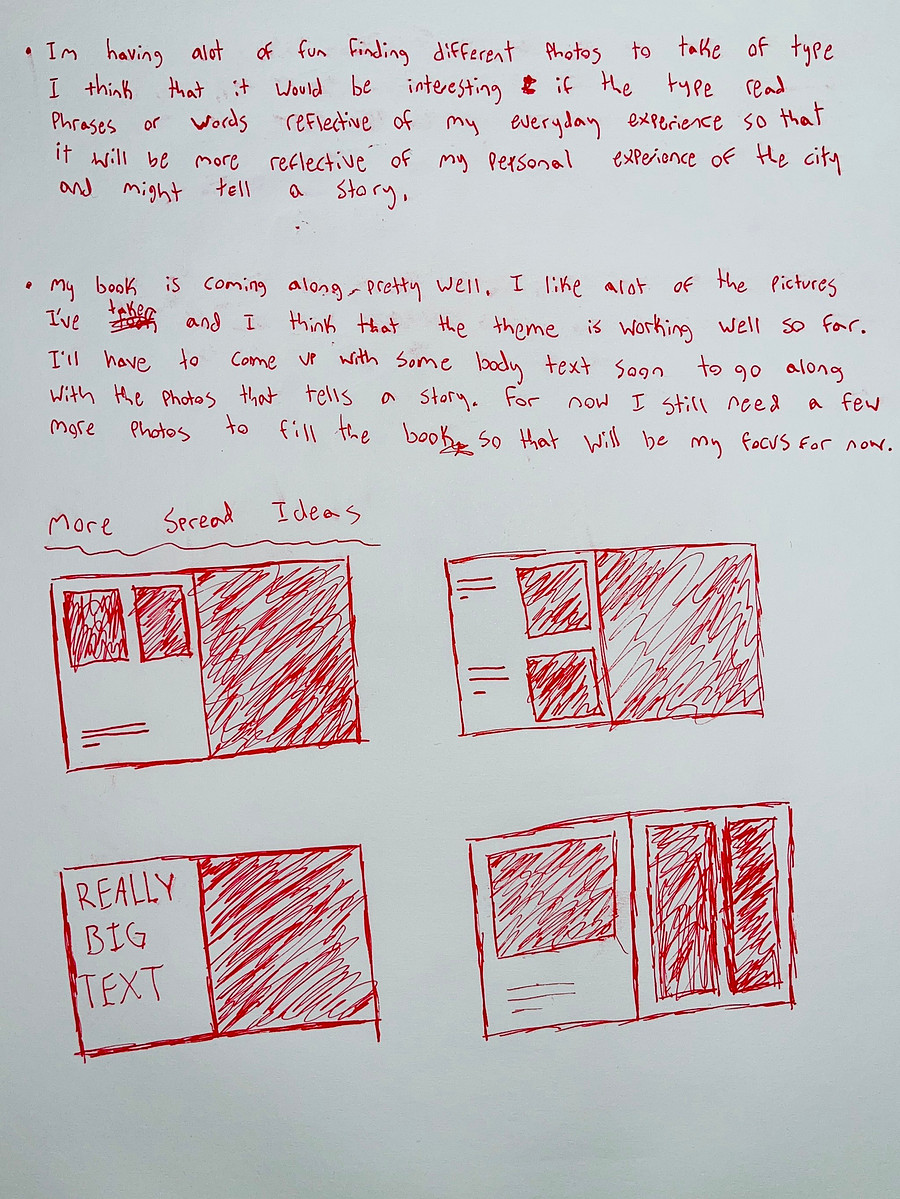 • Im having alot of fun finding different photos to take of type
I think that it would be interesting if the type read
Phrases or words reflective of my everyday experience so that
it will be more reflective of my personal experience of the city
and might tell a story.
• My book is coming along pretty well. I like alot of the pictures
I've taken and I think that the theme is working well so far.
I'll have to come up with some body text soon to go along
with the photos that tells a story. For now I still need a few
more photos to fill the book so that will be my focus for now.
More Spread Ideas
REALLY
BIG
TEXT